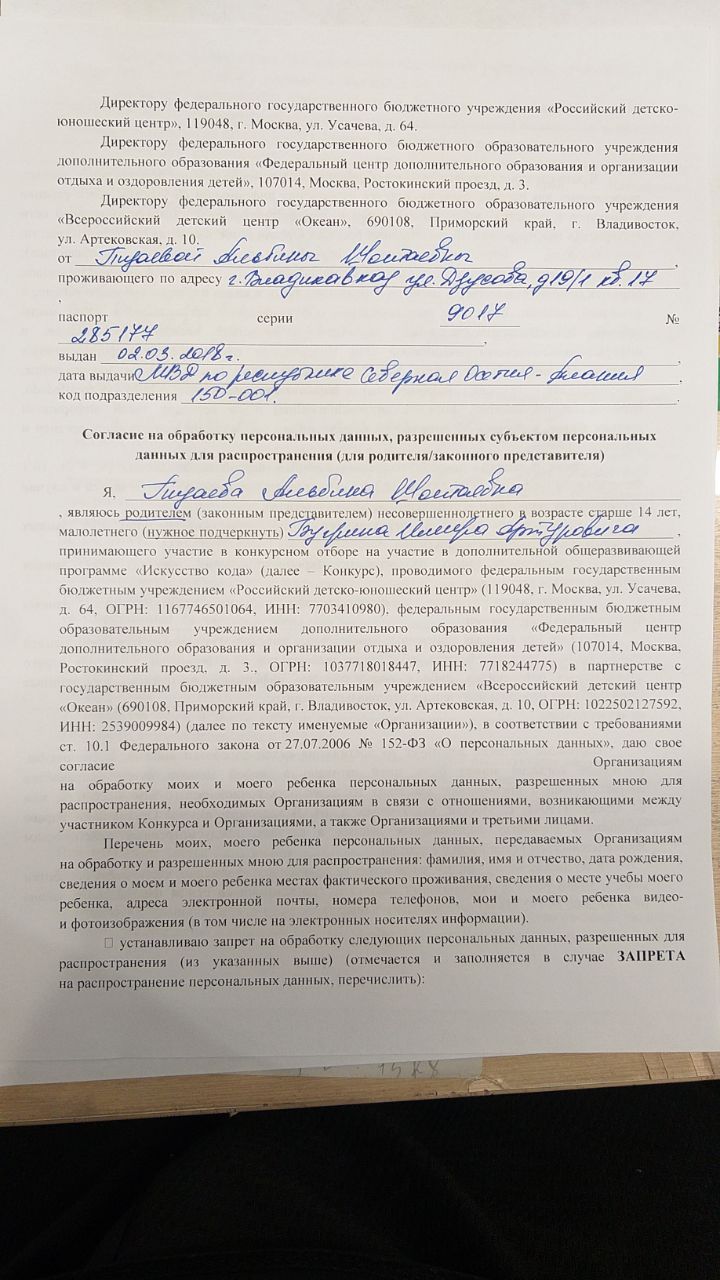 Директору федерального государственного бюджетного учреждения «Российский детско-
юношеский центр», 119048, г. Москва, ул. Усачева, д. 64.
Директору федерального государственного бюджетного образовательного учреждения
дополнительного образования «Федеральный центр дополнительного образования и организации
отдыха и оздоровления детей», 107014, Москва, Ростокинский проезд, д. 3.
Директору федерального государственного бюджетного образовательного учреждения
«Всероссийский детский центр «Океан», 690108, Приморский край, г. Владивосток,
ул. Артековская, д. 10.
от Альбины ,
проживающего по адресу г. Владикавказ ул. Дзусова, д19/1 кв. 17
.
паспорт серии 9017 №
285177 ,
выдан 02.03.2018г. ,
дата выдачи МВД по республике Северная Осетия-Алания .
код подразделения 150-001. .
Согласие на обработку персональных данных, разрешенных субъектом персональных
данных для распространения (для родителя/законного представителя)
Я, Альбина
, являюсь родителем (законным представителем) несовершеннолетнего в возрасте старше 14 лет,
малолетнего (нужное подчеркнуть) Артуровича ,
принимающего участие в конкурсном отборе на участие в дополнительной общеразвивающей
программе «Искусство кода» (далее – Конкурс), проводимого федеральным государственным
бюджетным учреждением «Российский детско-юношеский центр» (119048, г. Москва, ул. Усачева,
д. 64, ОГРН: 1167746501064, ИНН: 7703410980), федеральным государственным бюджетным
образовательным учреждением дополнительного образования «Федеральный центр
дополнительного образования и организации отдыха и оздоровления детей» (107014, Москва,
Ростокинский проезд, д. 3., ОГРН: 1037718018447, ИНН: 7718244775) в партнерстве с
государственным бюджетным образовательным учреждением «Всероссийский детский центр
«Океан» (690108, Приморский край, г. Владивосток, ул. Артековская, д. 10, ОГРН: 1022502127592,
ИНН: 2539009984) (далее по тексту именуемые «Организации»), в соответствии с требованиями
ст. 10.1 Федерального закона от 27.07.2006 № 152-ФЗ «О персональных данных», даю свое
согласие Организациям
на обработку моих и моего ребенка персональных данных, разрешенных мною для
распространения, необходимых Организациям в связи с отношениями, возникающими между
участником Конкурса и Организациями, а также Организациями и третьими лицами.
Перечень моих, моего ребенка персональных данных, передаваемых Организациям
на обработку и разрешенных мною для распространения: фамилия, имя и отчество, дата рождения,
сведения о моем и моего ребенка местах фактического проживания, сведения о месте учебы моего
ребенка, адреса электронной почты, номера телефонов, мои и моего ребенка видео-
и фотоизображения (в том числе на электронных носителях информации).
□ устанавливаю запрет на обработку следующих персональных данных, разрешенных для
распространения (из указанных выше) (отмечается и заполняется в случае ЗАПРЕТА
на распространение персональных данных, перечислить):